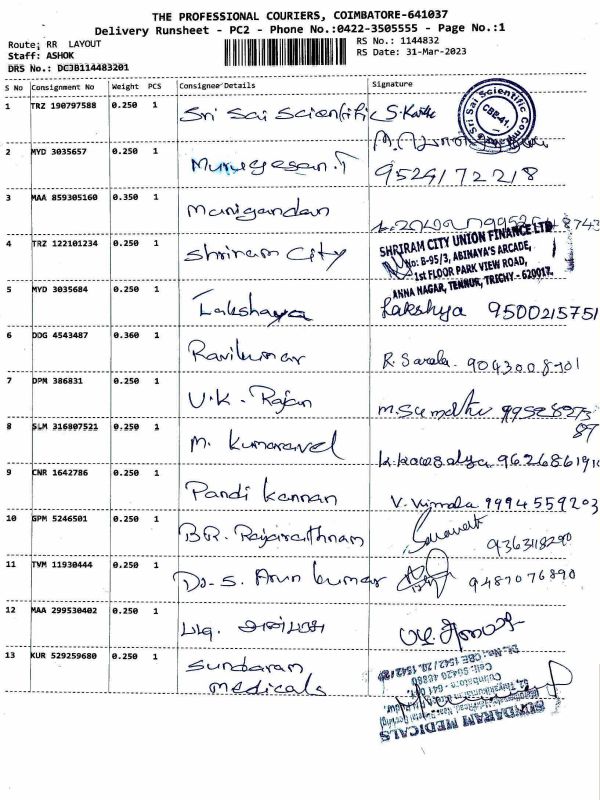 THE PROFESSIONAL COURIERS, COIMBATORE-641037
Delivery Runsheet - PC2 - Phone No.:0422-3505555 - Page No.:1
Route: RR LAYOUT
RS No.: 1144832
Staff: ASHOK
RS Date: 31-Mar-2023
DRS No.: DCJB114483201
S No Consignment No Weight PCS Consignee Details Signature
1 TRZ 190797588 0.250 1 Sri Sai Scientific S. Karthi
Sri Sai Scientific
CBE-41.
2 MYD 3035657 0.250 1 Murugesan.T 9524172218
3 MAA 859305160 0.350 1 Manigandan
4 TRZ 122101234 0.250 1 Shriram City
SHRIRAM CITY UNION FINANCE LTD
No: B-95/3, ABINAYA'S ARCADE,
1st FLOOR PARK VIEW ROAD,
ANNA NAGAR, TENNUR, TRICHY - 620017.
5 MYD 3035684 0.250 1 Lakshaya Lakshya 9500215751
6 DDG 4543487 0.360 1 Ravikumar R. Sarala.
7 DPM 386831 0.250 1 U.K. Rajan M.Sumathi
8 SLM 316807521 0.250 1 M. Kumaravel K. Kowsalya 962686191
9 CNR 1642786 0.250 1 Pandi Kannan V. Vimala 9994559203
10 GPM 5246501 0.250 1 B.R. Rajarathnam 9363118290
11 TVM 11930444 0.250 1 Dr. S. Arun kumar 9487076890
12 MAA 299530402 0.250 1
13 KUR 529259680 0.250 1 Sundaran
Medicals
SUNDARAM MEDICALS
Coimbatore - 641
Cell: 98420 46880
DL.No.: CBE 1542 / 20, 1542 / 21